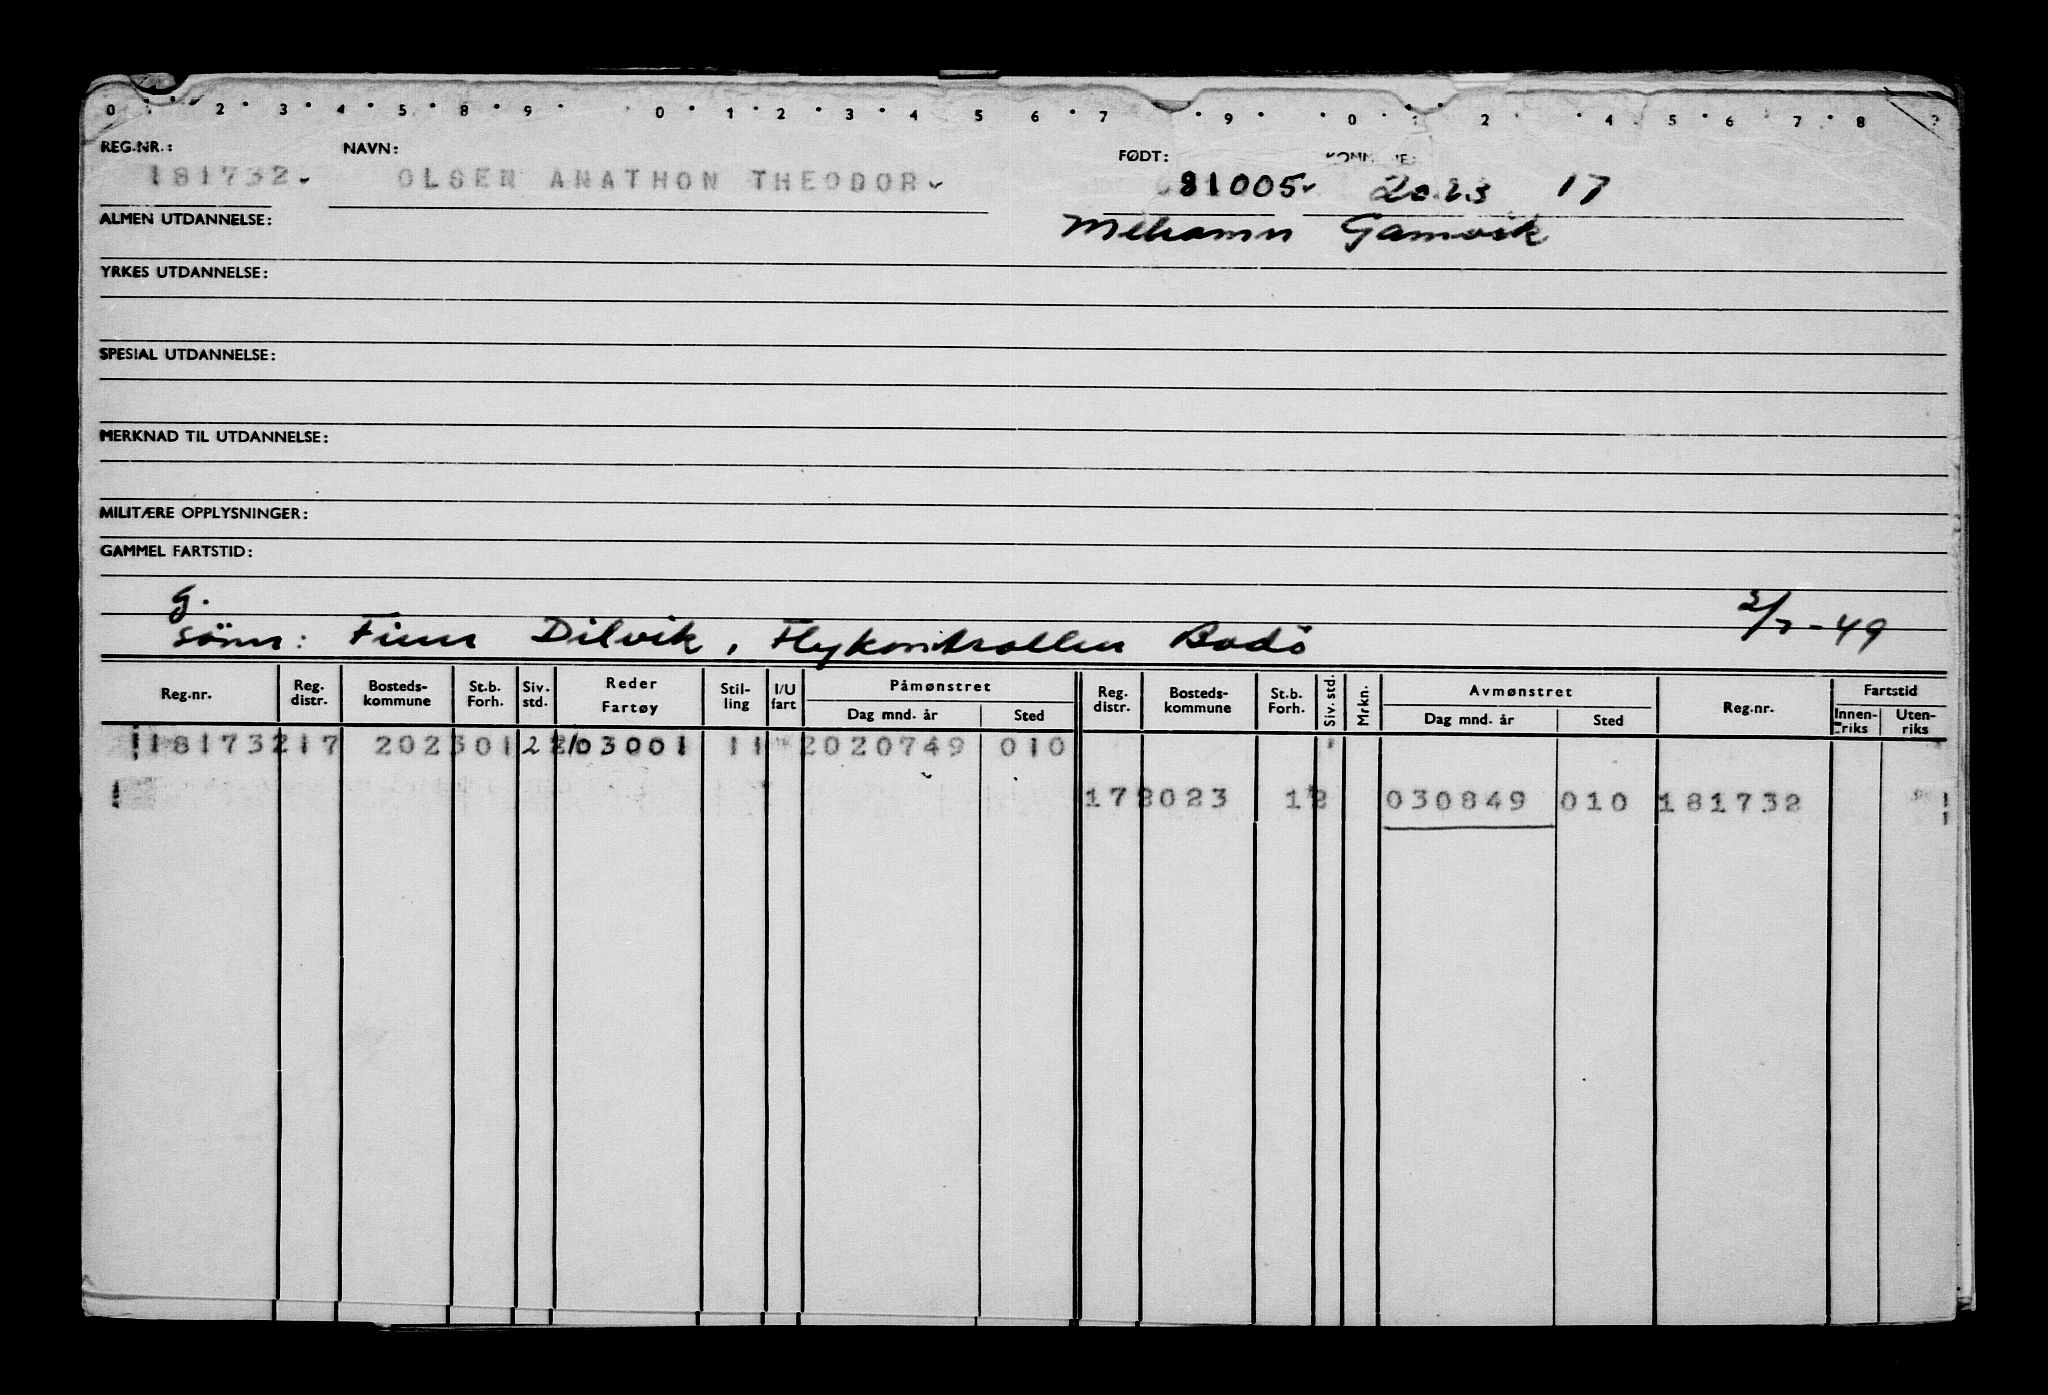 0 1 2 3 4 5 8 9 0 1 2 3 4 5 6 7 9 0 1 2 4 5 6 7 8 ?
REG.NR.: NAVN: FØDT: KOMMUNE:
181732 OLSEN ANATHON THEODOR 81005 2023 17
ALMEN UTDANNELSE: Mehamn Gamvik
YRKES UTDANNELSE:
SPESIAL UTDANNELSE:
MERKNAD TIL UTDANNELSE:
MILITÆRE OPPLYSNINGER:
GAMMEL FARTSTID:
g.
sönn: Finn Dilvik, Flykontrollen Bodö 2/7-49
Reg.nr. Reg. distr. Bosteds-kommune St.b. Forh. Siv. std. Reder Fartøy Stil-ling I/U fart Påmønstret Dag mnd. år Sted Reg. distr. Bosteds-kommune St.b. Forh. Siv. std. Mrkn. Avmønstret Dag mnd. år Sted Reg.nr. Fartstid Innen-riks Uten-riks
181732 17 2023 01 2 103001 11 2 020749 010
17 2023 1 2 030849 010 181732